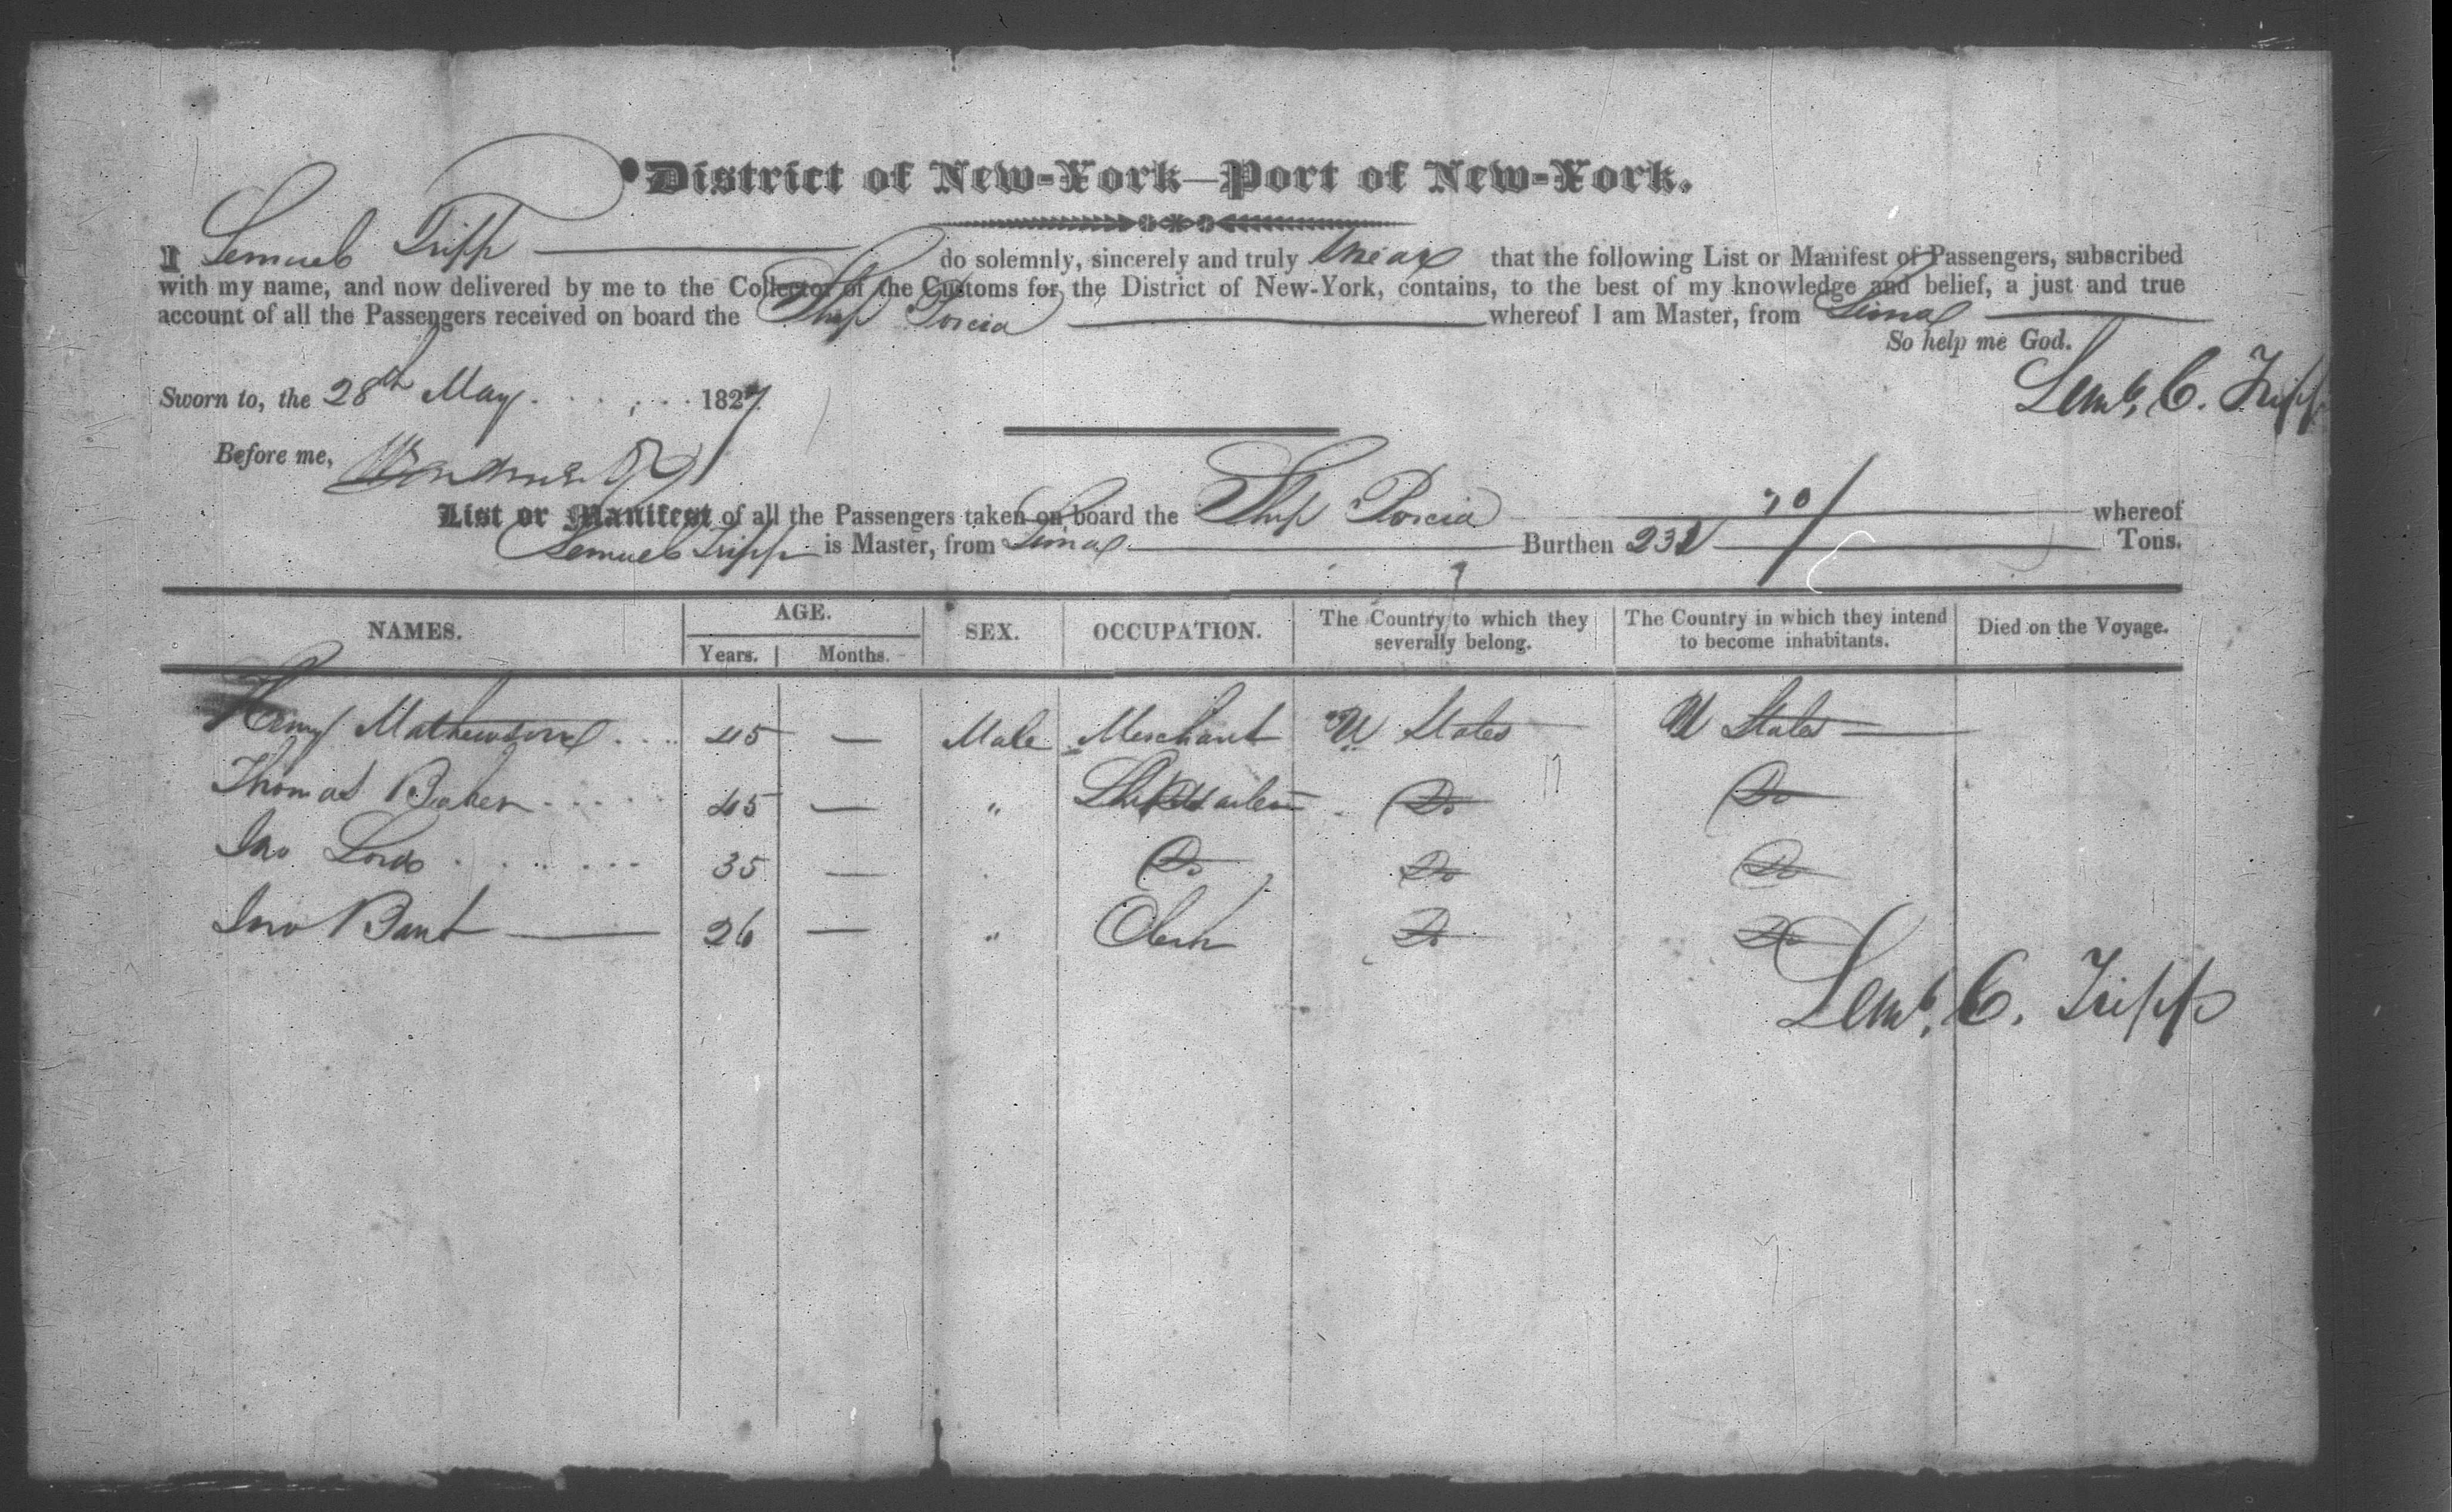 District of New-York—Port of New-York.
I Lemuel Tripp do solemnly, sincerely and truly swear that the following List or Manifest of Passengers, subscribed
with my name, and now delivered by me to the Collector of the Customs for the District of New-York, contains, to the best of my knowledge and belief, a just and true
account of all the Passengers received on board the Ship Porcia whereof I am Master, from Lima
So help me God.
Sworn to, the 28th May 1827
Leml. C. Tripp
Before me,
List or Manifest of all the Passengers taken on board the Ship Porcia whereof
Lemuel Tripp is Master, from Lima Burthen 232 70/ Tons.
NAMES. AGE. SEX. OCCUPATION. The Country to which they severally belong. The Country in which they intend to become inhabitants. Died on the Voyage.
Years. Months.
Henry Mathewson 45 — Male Merchant U States U States
Thomas Baker 45 — " Ship Master Do Do
Jno Lord 35 — Do Do Do
Jno Bant 26 — " Clerk Do Do
Leml. C. Tripp